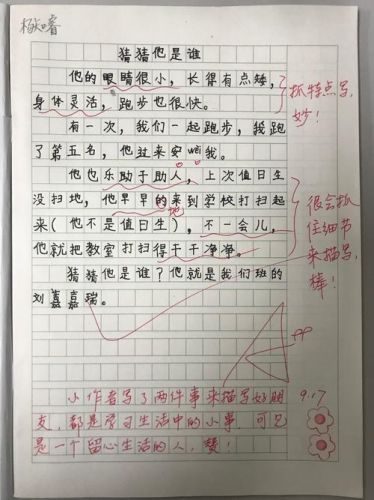 猜猜他是谁
他的眼睛很小，长得有点矮，
身体灵活，跑步也很快。
抓特点写，
妙！
有一次，我们一起跑步，我跑
了第五名，他过来安wèi我。
他也乐助于助人，上次值日生
没扫地，他早早的来到学校打扫起
地
来（他不是值日生），不一会儿，
他就把教室打扫得干干净净。
很会抓
住细节
来描写，
棒！
猜猜他是谁？他就是我们班的
刘嘉嘉瑞。
小作者写了两件事来描写好朋
友，都是学习生活中的小事，可见
是一个留心生活的人，赞！
9.17